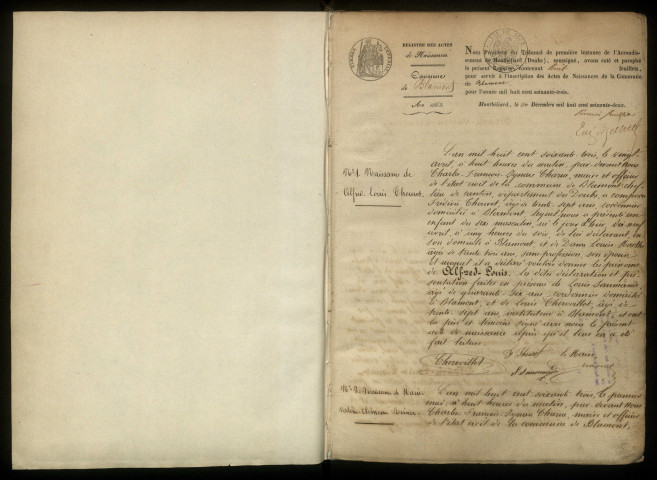 REGISTRE DES ACTES
de Naissances
Commune
de Blamont
An 1863
Nous Président du Tribunal de première instance de l'Arrondis-
sement de Montbéliard (Doubs), soussigné, avons coté et paraphé
le présent Registre contenant huit feuillets,
pour servir à l'inscription des Actes de Naissances de la Commune
de Blamont
pour l'année mil huit cent soixante-trois.
Montbéliard, le Décembre mil huit cent soixante-deux.
No 1. Naissance de
Alfred Louis
L'an mil huit cent soixante trois, le vingt
avril, à huit heures du matin, par devant Nous
Charles François Ignace, maire et officier
de l'état civil de la commune de Blamont chef
lieu de canton, département du Doubs, a comparu
âgé de trente sept ans, cordonnier
domicilié à Blamont, lequel nous a présenté un
enfant du sexe masculin, né le jour d'hier dix neuf
avril, à cinq heures du soir, de lui déclarant en
son domicile à Blamont et de Dame Louise
âgée de trente trois ans, sans profession, son épouse
et auquel il a déclaré vouloir donner les prénoms
de Alfred-Louis. Les dites déclaration et pré-
sentation faites en présence de Louis
âgé de quarante six ans, cordonnier domicilié
à Blamont, et de Louis Chenevillot, âgé de
trente sept ans, instituteur à Blamont, et ont
les père et témoins signé avec nous le présent
acte de naissance après qu'il leur en a été
fait lecture.
le Maire
No 2. Naissance de Marie
L'an mil huit cent soixante trois, le premier
mai, à huit heures du matin, par devant Nous
Charles François Ignace, maire et officier
de l'état civil de la commune de Blamont,